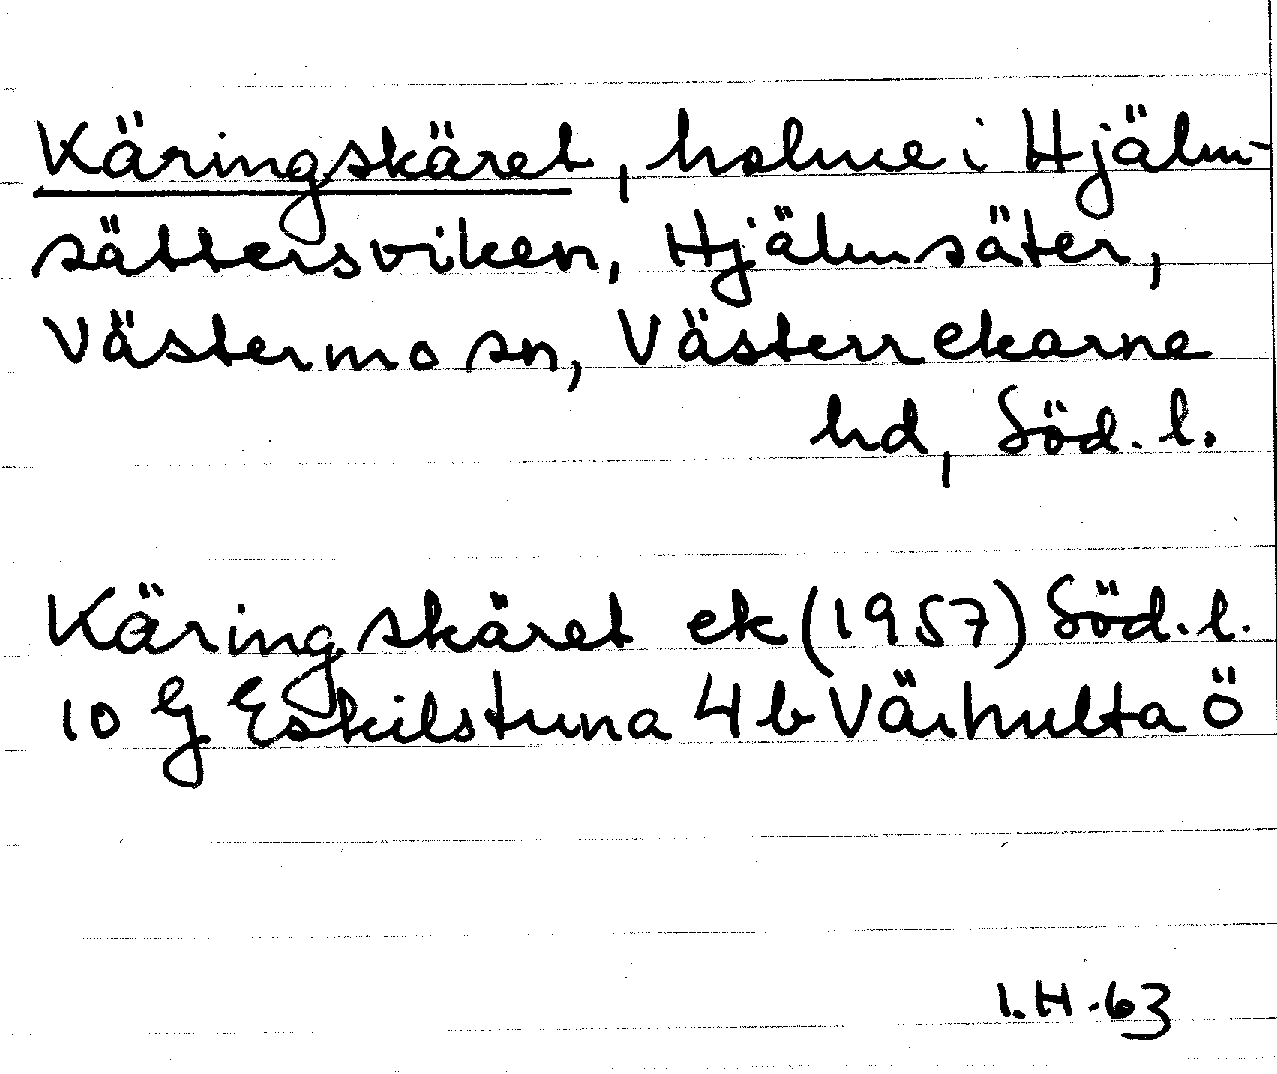 Käringskäret, holme i Hjälm-
sättersviken, Hjälmsäter,
Västermo sn, Västerrekarne
hd, Söd. l.
Käringskäret ek (1957) Söd. l.
10 G Eskilstuna 4 b Värhulta ö
I. H. 63